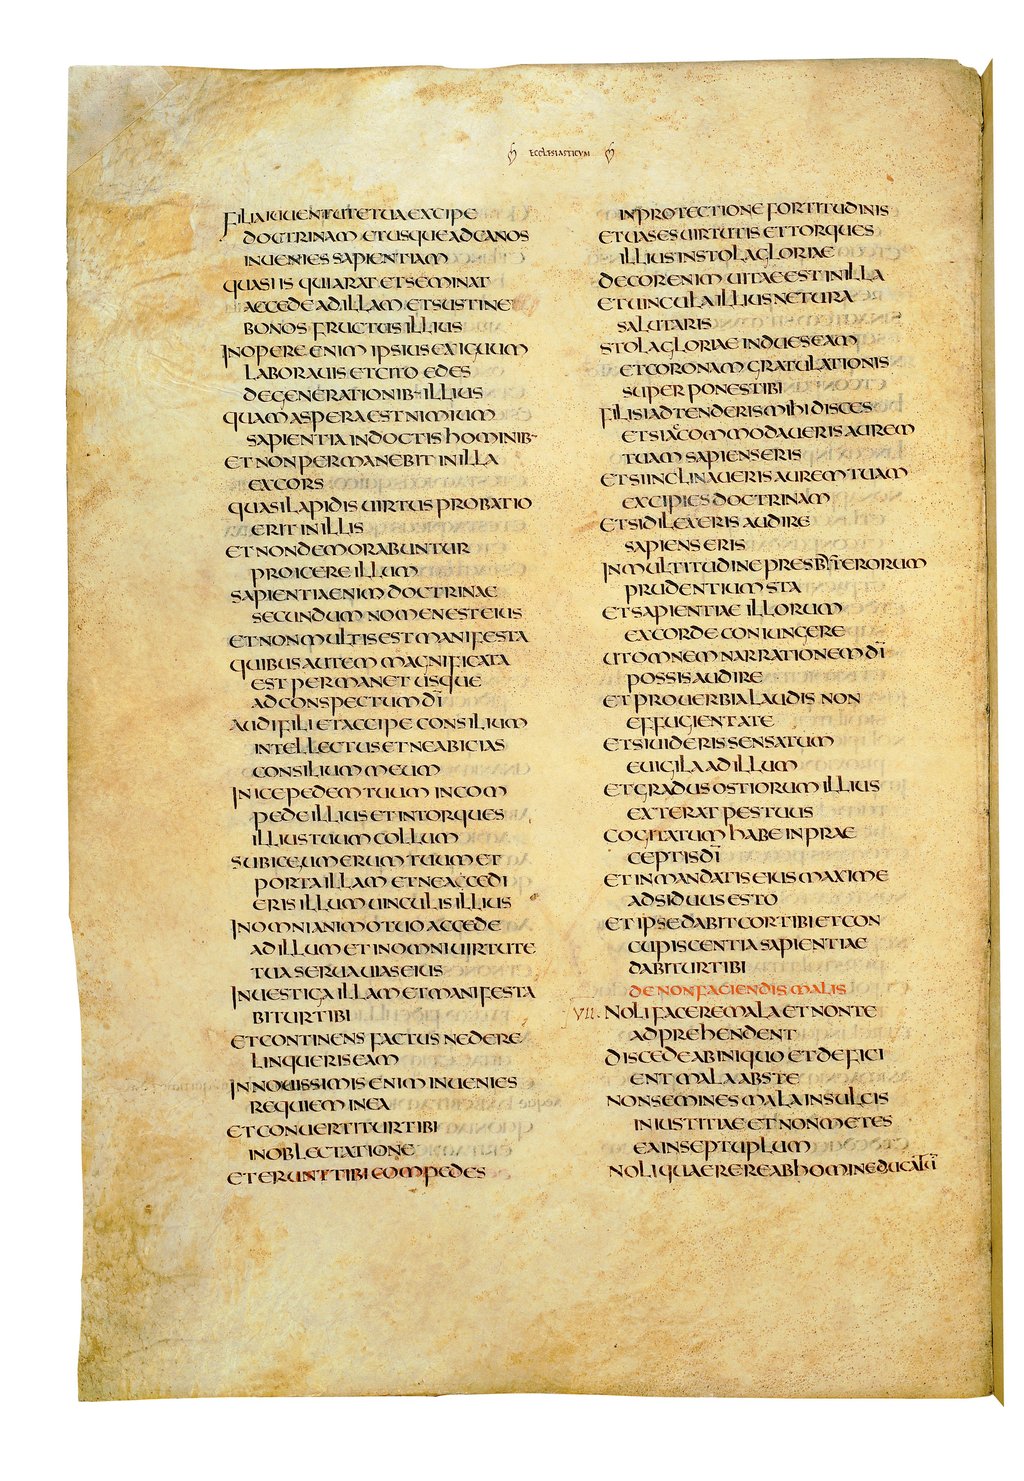 ECCLESIASTICUM
FILI A IUUENTUTE TUA EXCIPE
DOCTRINAM ET USQUE AD CANOS
INUENIES SAPIENTIAM
QUASI IS QUI ARAT ET SEMINAT
ACCEDE AD ILLAM ET SUSTINE
BONOS FRUCTUS ILLIUS
IN OPERE ENIM IPSIUS EXIGUUM
LABORAUIS ET CITO EDES
DE GENERATIONIB· ILLIUS
QUAM ASPERA EST NIMIUM
SAPIENTIA INDOCTIS HOMINIB·
ET NON PERMANEBIT IN ILLA
EXCORS
QUASI LAPIDIS UIRTUS PROBATIO
ERIT IN ILLIS
ET NON DEMORABUNTUR
PROICERE ILLUM
SAPIENTIA ENIM DOCTRINAE
SECUNDUM NOMEN EST EIUS
ET NON MULTIS EST MANIFESTA
QUIBUS AUTEM MAGNIFICATA
EST PERMANET USQUE
AD CONSPECTUM DI
AUDI FILI ET ACCIPE CONSILIUM
INTELLECTUS ET NE ABICIAS
CONSILIUM MEUM
INICE PEDEM TUUM IN COM
PEDE ILLIUS ET IN TORQUES
ILLIUS TUUM COLLUM
SUBICE UMERUM TUUM ET
PORTA ILLAM ET NE ACCEDI
ERIS ILLUM UINCULIS ILLIUS
IN OMNI ANIMO TUO ACCEDE
AD ILLUM ET IN OMNI UIRTUTE
TUA SERUA UIAS EIUS
INUESTIGA ILLAM ET MANIFESTA
BITUR TIBI
ET CONTINENS FACTUS NE DERE
LINQUERIS EAM
IN NOUISSIMIS ENIM INUENIES
REQUIEM IN EA
ET CONUERTITUR TIBI
IN OBLECTATIONE
ET ERUNT TIBI COMPEDES
IN PROTECTIONE FORTITUDINIS
ET UASES UIRTUTIS ET TORQUES
ILLIUS IN STOLA GLORIAE
DECOR ENIM UITAE EST IN ILLA
ET UINCULA ILLIUS NETURA
SALUTARIS
STOLA GLORIAE INDUES EAM
ET CORONAM GRATULATIONIS
SUPERPONES TIBI
FILI SI ADTENDERIS MIHI DISCES
ET SI ACCOMMODAUERIS AUREM
TUAM SAPIENS ERIS
ET SI INCLINAUERIS AUREM TUAM
EXCIPIES DOCTRINAM
ET SI DILEXERIS AUDIRE
SAPIENS ERIS
IN MULTITUDINE PRESBYTERORUM
PRUDENTIUM STA
ET SAPIENTIAE ILLORUM
EX CORDE CONIUNGERE
UT OMNEM NARRATIONEM DI
POSSIS AUDIRE
ET PROUERBIA LAUDIS NON
EFFUGIENT A TE
ET SI UIDERIS SENSATUM
EUIGILA AD ILLUM
ET GRADUS OSTIORUM ILLIUS
EXTERAT PES TUUS
COGITATUM HABE IN PRAE
CEPTIS DI
ET IN MANDATIS EIUS MAXIME
ADSIDUUS ESTO
ET IPSE DABIT COR TIBI ET CON
CUPISCENTIA SAPIENTIAE
DABITUR TIBI
DE NON FACIENDIS MALIS
VII. NOLI FACERE MALA ET NON TE
ADPREHENDENT
DISCEDE AB INIQUO ET DEFICI
ENT MALA ABS TE
NON SEMINES MALA IN SULCIS
INIUSTITIAE ET NON METES
EA IN SEPTUPLUM
NOLI QUAERERE AB HOMINE DUCATU